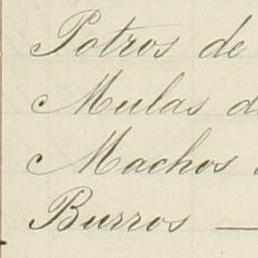 Potros de
Mulas de
Machos
Burros —